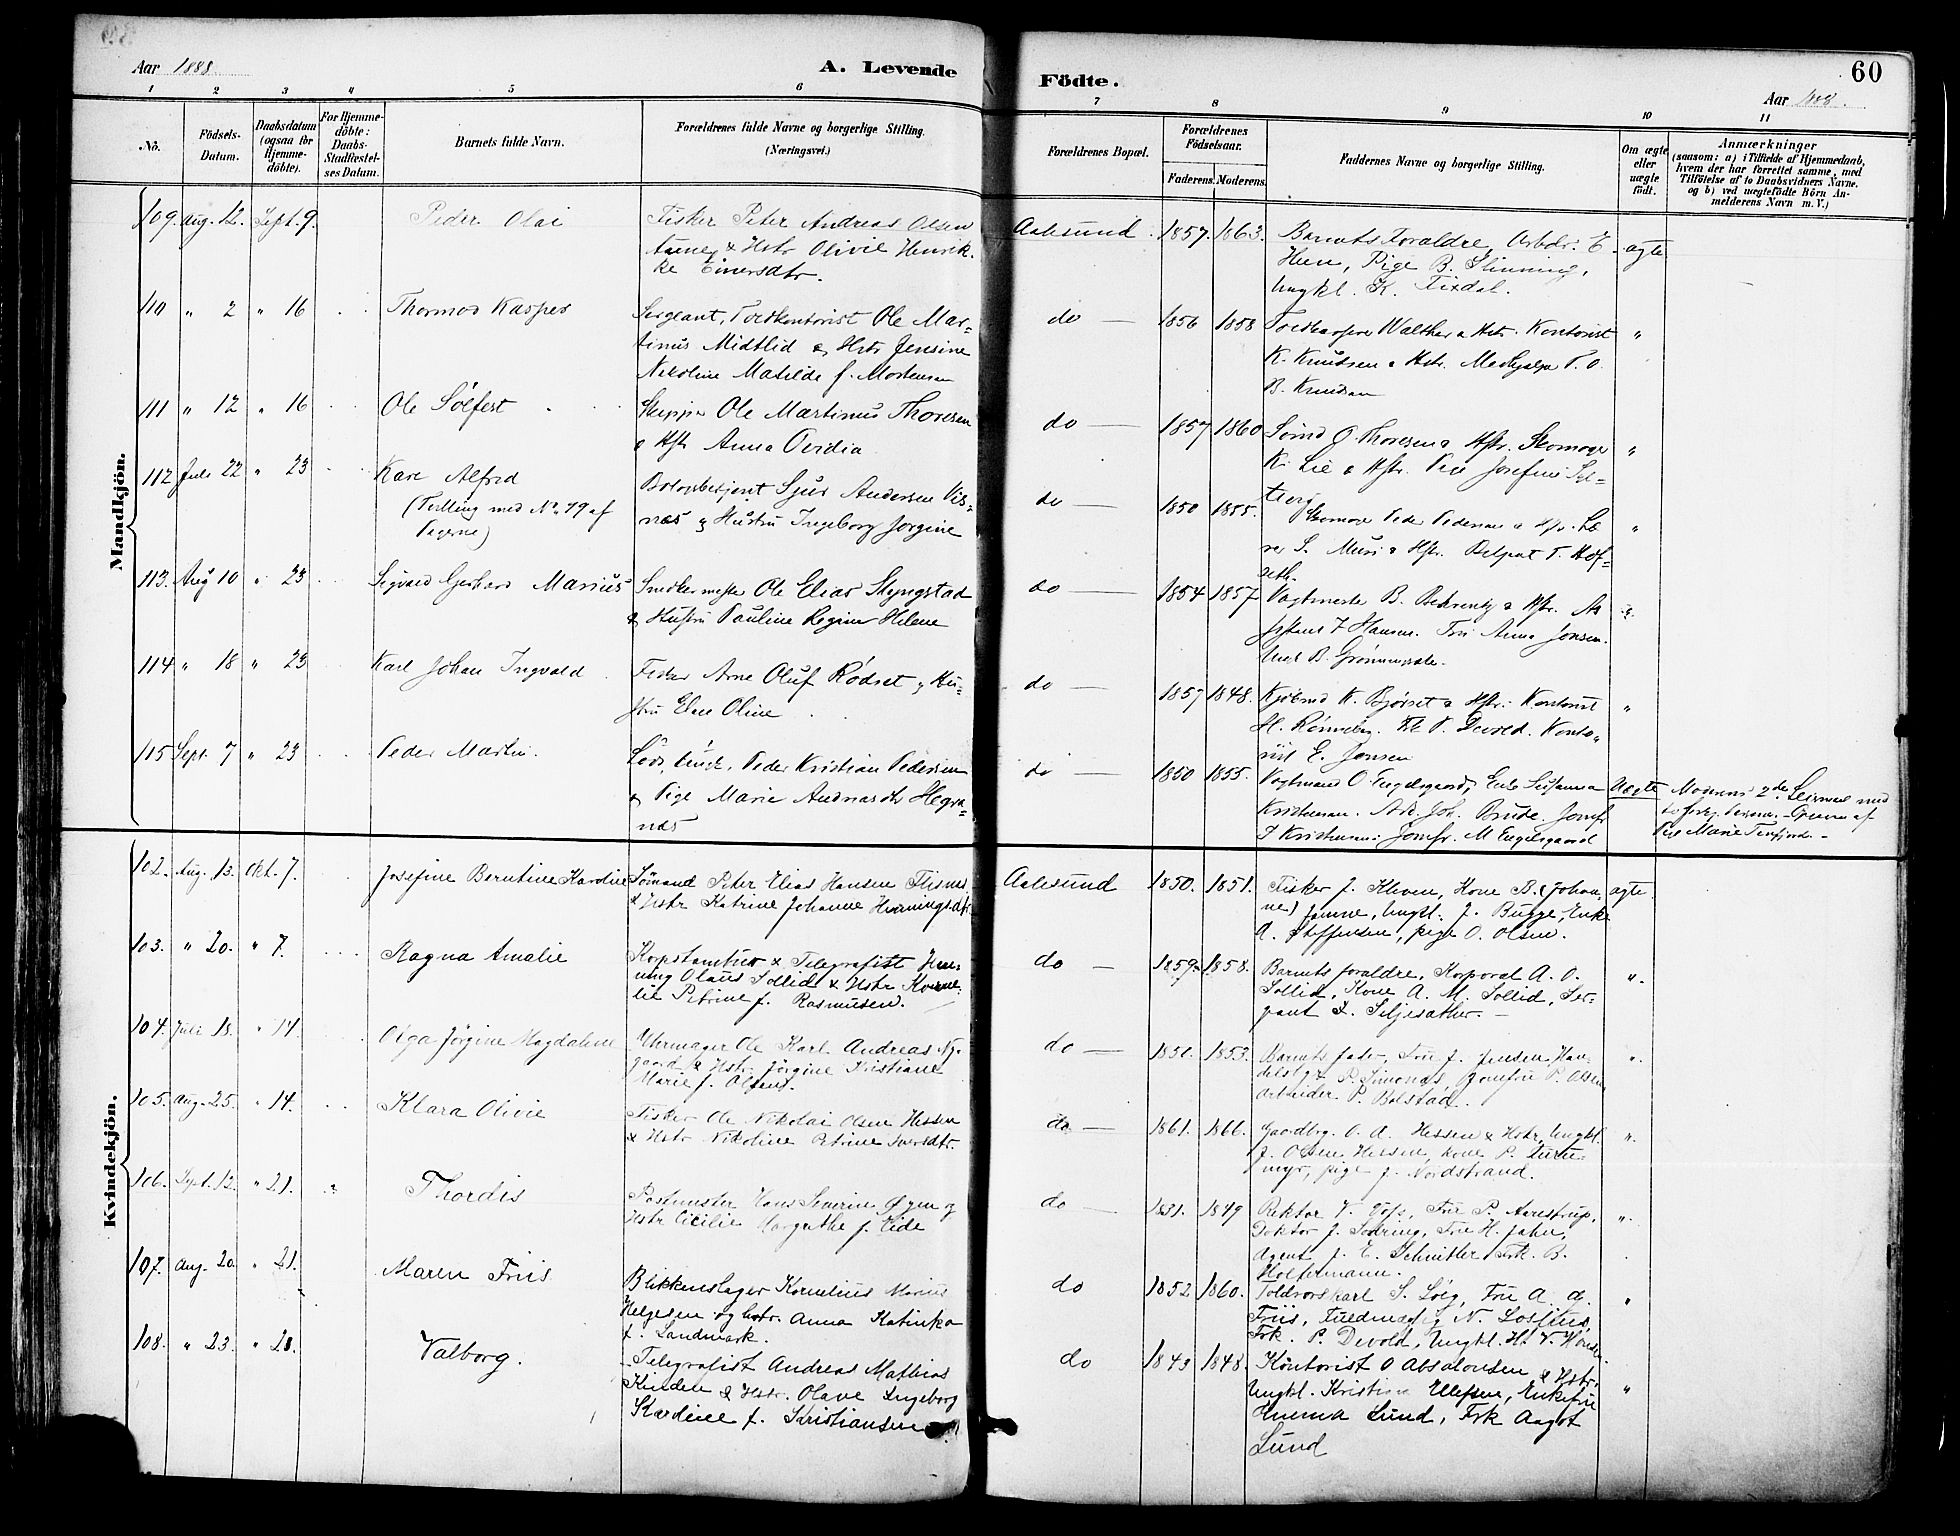 Aar 1888.
A. Levende
Födte.
60
Aar 1888.
1 2 3 4 5 6 7 8 9 10 11
No.
Födsels-
Datum.
Daabsdatum
(ogsaa for
Hjemme-
döbte).
For Hjemme-
döbte:
Daabs-
Stadfæstel-
ses Datum.
Barnets fulde Navn.
Forældrenes fulde Navne og borgerlige Stilling.
(Næringsvei.)
Forældrenes Bopæl.
Forældrenes
Födselsaar.
Faderens. Moderens.
Faddernes Navne og borgerlige Stilling.
Om ægte
eller
uægte
født.
Anmærkninger
(saasom: a) i Tilfælde af Hjemmedaab,
hvem der har forrettet samme, med
Tilföielse af to Daabsvidners Navne.
og b) ved uægtefödte Börn An-
melderens Navn m. V.)
Mandkjön.
109. Aug. 12. Sept. 9. Peder Olai
Fisker Peter Andreas Olsen
& Hstr Olivie Henrik-
ke Einersdtr.
Aalesund 1857. 1863.
Barnets Foraldre, Arbdr. E
Huse, Pige B. Slinning,
Ungkl. K. Fixdal.
ægte
110 " 2 " 16 Thormod Kasper
Sergeant, Toldkontorist Ole Mar-
tinus Midtlid & Hstr Jensine
Nikoline Matilde f. Mortensen
do 1856 1858
Walther & Hstr. Kontorist
K. Knudsen & Hstr. Medhjelper T. O.
B. Knudsen
"
111 " 12 " 16 Ole Sölfest
Skipper Ole Martinus Thoresen
& Hstr Anna Ovidia
do 1857 1860
O. Thoresen & Hstr. Skomager
K. Lie & Hstr. Pige Josefine Sel-
"
112 Juli 22 " 23 Karl Alfred
(Tvilling med No. 79 af
Pigerne)
Sjur Andersen Vis-
nes & Hustru Ingeborg Jorgine
do 1850 1855.
Skomager Peder Pedersen & Hstr.
"
113. Aug 10 " 23 Sigvald Gerhard Marius
Smedkermester Ole Elias Skyngstad
& Hustru Pauline Regine Helene
do 1854 1857
Vagtmester B. & Hstr. As-
sistent Hansen. Fru Anna Jonsen.
Ungk B.
114 " 18 " 23 Karl Johan Ingvald
Fisker Arne Oluf Rödset & Hu-
stru Elen Oline
do 1857 1848.
Kjöbmd K. Bjørset & Hstr. Kontorist
H. Rønneberg. P. Devold. Konto-
rist E. Jonsen
"
115 Sept. 7 " 23 Peder Martin.
Peder Kristian Pedersen
& Pige Marie Andreasdtr Hegre-
næs
do 1850 1855.
Vogtmand O. Engelsgaard, Enke Susanna
Kristiansen. Arb. Joh. Brude. Jomfr
Kristiansen. Jomfr. M Engelsgaard
Uægte
Moderens 2den Leirmaal med
Pige Marie
Kvindekjön.
102. Aug. 13. Okt. 7. Josefine Berntine Karoline
Sömand Peter Elias Hansen
& Hstr Katrine Johanne Henningsdtr.
Aalesund 1850. 1851.
Fisker J. Kleven, Kone B. (Johan-
ne) Ungkl. J. Bugge, Enke
A. Steffensen, pige O. Olsen.
ægte
103. " 20. " 7. Ragna Amalie
& Telegrafist Hen-
ning Olaus Sollid & Hstr Korne-
lie Petrine f. Rasmusen.
do 1859. 1858.
Barnets foraldre, Korporal A. O.
Sollid, Kone A. M. Sollid, Ser-
gant Siljesæther.
".
104. Juli 18. " 14. Olga Jörgine Magdalene
Uhrmager Ole Karl Andreas Ny-
gaard & Hstr. Jörgine Kristiane
Marie f. Olsen.
do 1851. 1853.
Barnets fader, Fru J. Jensen, Han-
P. Simonds, Jomfru P. Olsen
Arbeider P. Bolstad.
".
105. Aug. 25. " 14. Klara Olivie
Fisker Ole Nikolai Olsen Hessen
& Hstr Nikoline Petrine Iversdtr.
do 1861. 1861.
Gaardbrg. O. A. Hessen & Hstr, Ungkl.
J. Olsen Hessen, kone P.
myr, pige J. Nordstrand.
".
106. Sept. 12. " 21. Thordis
Postmester Hans Severin Øyen og
Hstr Cicilie Margrethe f. Eide
do 1831. 1849
Rektor V. Voss, Fru P. Aarestrup,
Doktor J. Sodring, Fru H. Jahn,
Agent J. E. Schnitler, Frk. B.
Holfermann.
".
107. Aug. 20. " 21. Maren Friis
Blikkenslager Kornelius Marius
Helgesen og hstr. Anna Katinka
f. Landmark.
do 1852 1860.
S. Löig, Fru A. d.
Friis, N.
Frk. P. Devold, Ungkl. H. V. Hansen
"
108. " 23. " 28. Valborg.
Telegrafist Andreas Mathias
Kindem & Hstr. Olave Ingeborg
Karoline f. Kristiansen
do 1843 1848.
Kontorist O Absalonsen & Hstr,
Ungkl. Kristian Ellefsen, Enkefru
Emma Lund, Frk Aagot
Lund
"